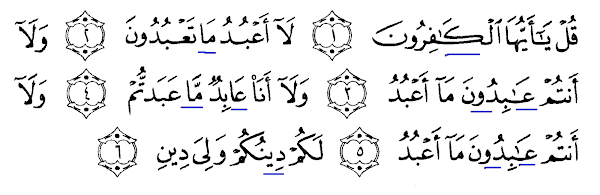 قُلْ يَـٰٓأَيُّهَا ٱلْكَـٰفِرُونَ ۝١ لَآ أَعْبُدُ مَا تَعْبُدُونَ ۝٢ وَلَآ
أَنتُمْ عَـٰبِدُونَ مَآ أَعْبُدُ ۝٣ وَلَآ أَنَا۠ عَابِدٌ مَّا عَبَدتُّمْ ۝٤ وَلَآ
أَنتُمْ عَـٰبِدُونَ مَآ أَعْبُدُ ۝٥ لَكُمْ دِينُكُمْ وَلِىَ دِينِ ۝٦